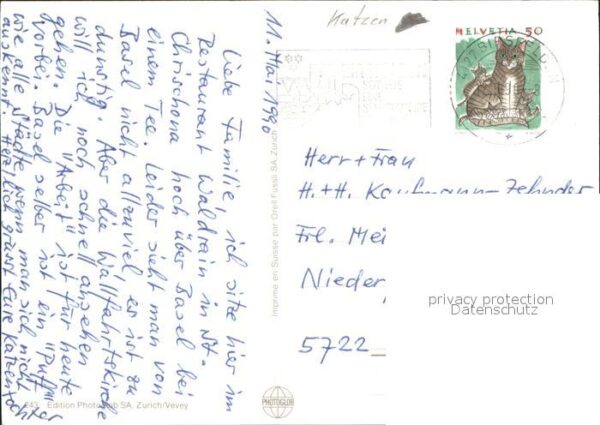 Katzen
HELVETIA 50
11. Mai 1990
Liebe Familie, ich sitze hier im
Restaurant Waldrain in St.
Chrischona hoch über Basel bei
einem Tee. Leider sieht man von
Basel nicht allzuviel, es ist zu
dunstig. Aber die Wallfahrtskirche
will ich noch schnell ansehen
gehen. Die "Arbeit" ist für heute
vorbei. Basel selber ist ein "Puff"
wie alle Städte wenn man sich nicht
auskennt. Herzlich grüsst Eure Katzentochter
Imprimé en Suisse par Orell Füssli SA, Zurich
Herr + Frau
H. + H. Kaufmann-Zehnder
Frl. Mei
Nieder
5722
privacy protection
Datenschutz
PHOTOGLOB
243 Edition Photoglob SA, Zurich/Vevey